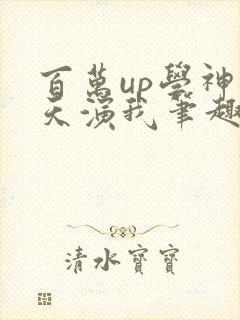 百萬up學神
天演我筆趣
清水寶寶